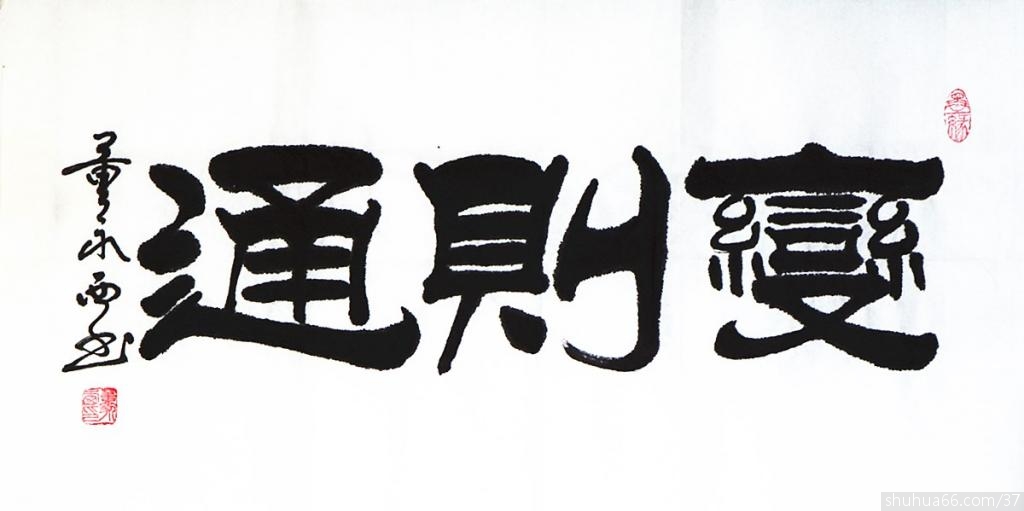 變則通
董永西书
shuhua66.com/37